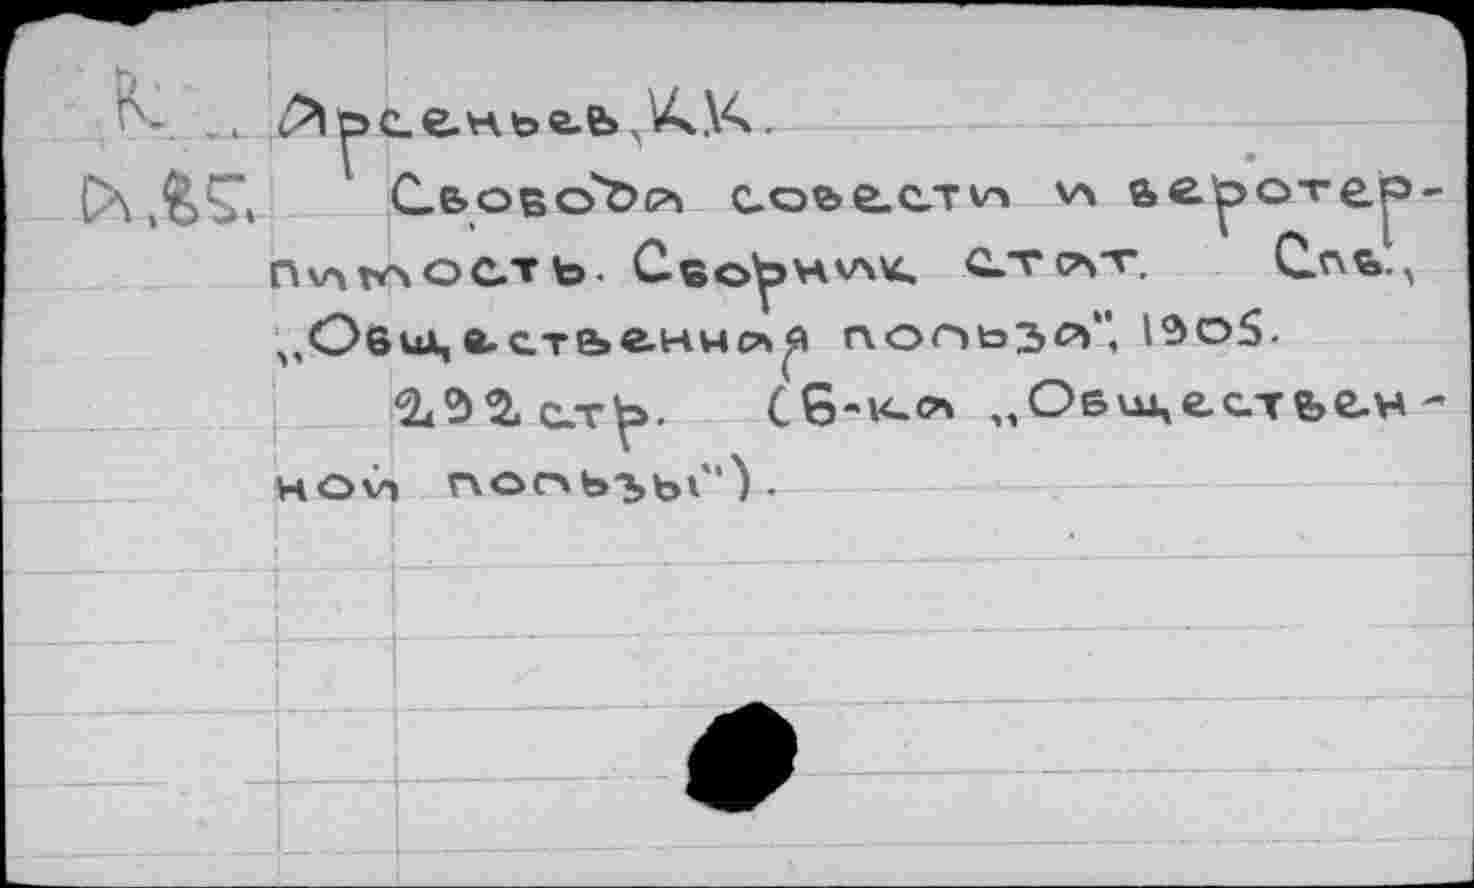 К Арсеньев, К.К.
Свобода совести и веротер-
пимость. Сборник стат. Спб.,
„Общественная польза", 1905.
292 стр. (Б-ка „Обществен-
ной пользы").